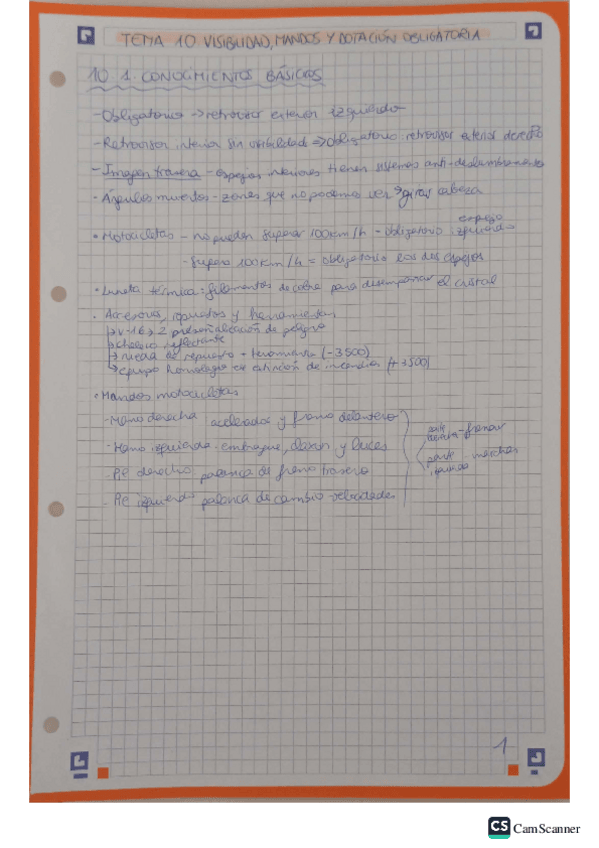 TEMA 10 VISIBILIDAD, MANDOS Y DOTACIÓN OBLIGATORIA
10.1. CONOCIMIENTOS BÁSICOS
- Obligatorios → retrovisor exterior izquierdo
- Retrovisor interior sin visibilidad => obligatorio: retrovisor exterior derecho
- Imagen trasera - espejos interiores tienen sistemas anti-deslumbramiento
- Ángulos muertos - zonas que no podemos ver girar cabeza
• Motocicletas - no pueden superar 100km/h - obligatorio espejo izquierdo
- Supera 100km/h = obligatorio los dos espejos
• Luneta térmica: filamentos de cobre para desempañar el cristal
• Accesorios, repuestos y herramientas
↳ V-16 ó 2 preseñalización de peligro
↳ chaleco reflectante
↳ rueda de repuesto + herramienta (-3500)
↳ equipo homologado de extinción de incendios (+3500)
• Mandos motocicletas
- Mano derecha acelerador y freno delantero
- Mano izquierda - embrague, claxon y luces
- Pie derecho palanca de freno trasero
- Pie izquierdo palanca de cambio velocidades
parte derecha - frenar
parte izquierda - marchas
1
CS CamScanner